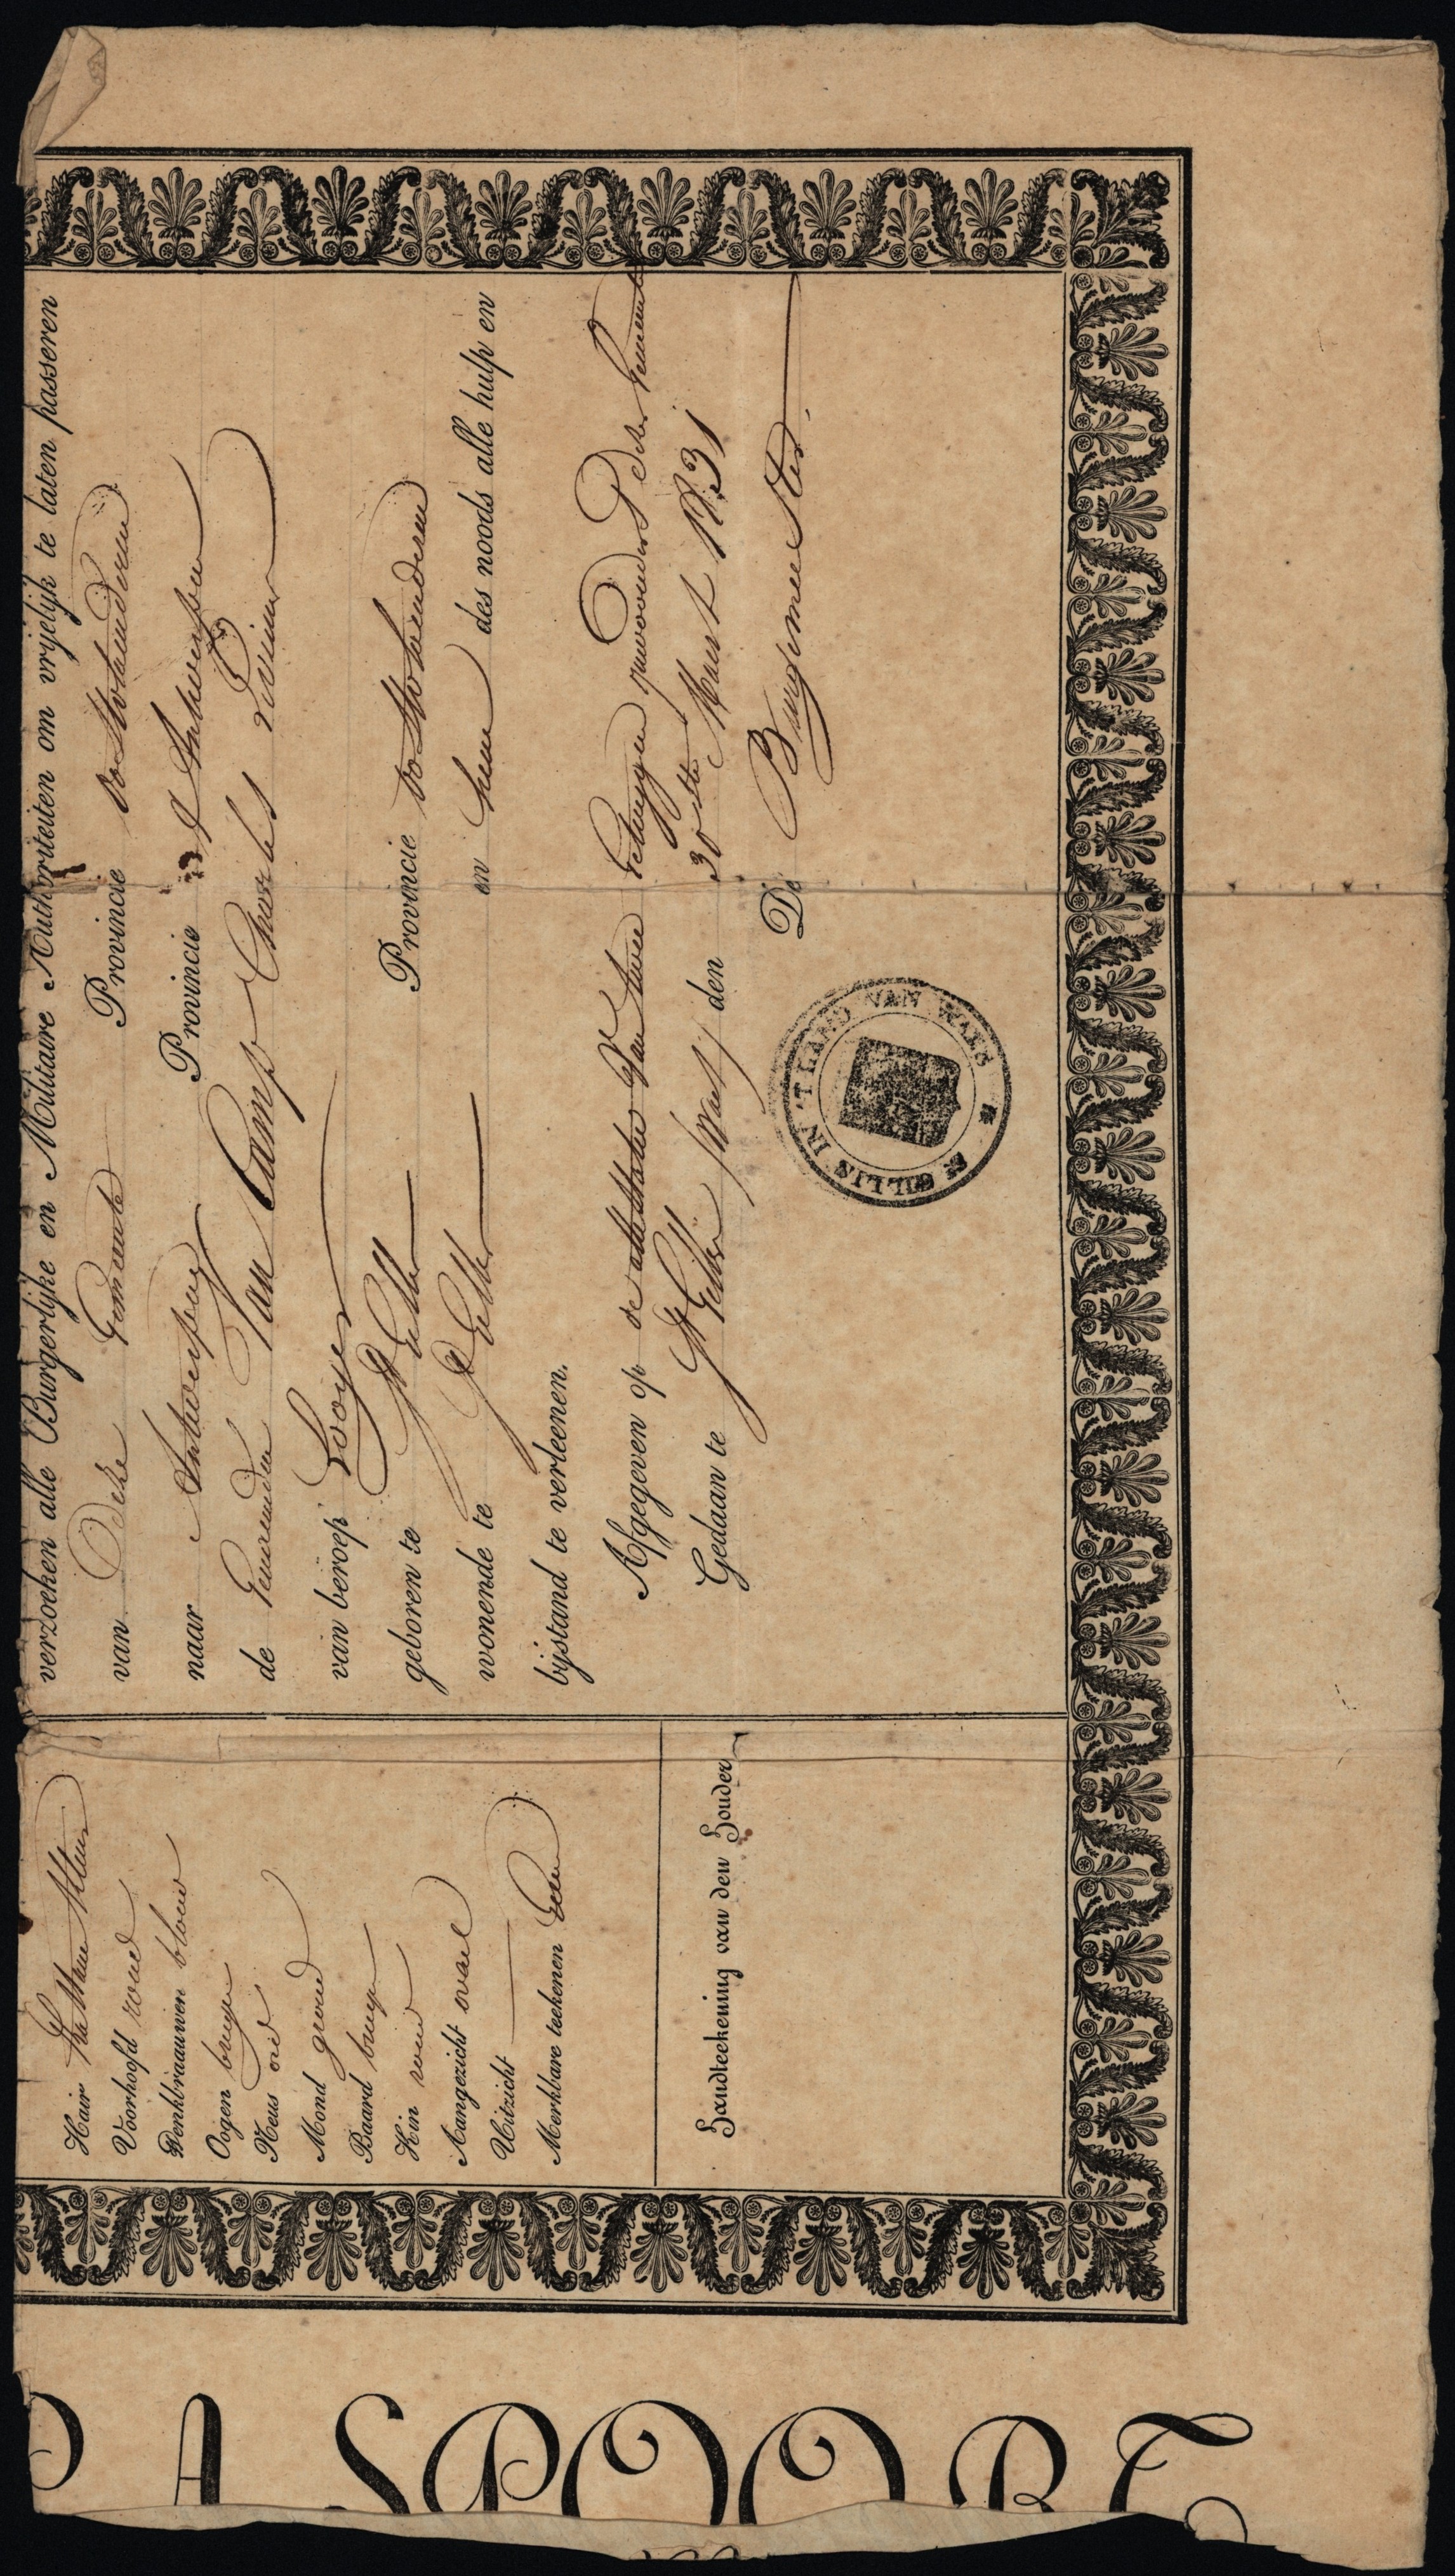 PASPOORT
Hair
Voorhoofd rond
Wenkbraauwen blond
Oogen bruyn
Neus
Mond groot
Baard bruyn
Kin rond
Aangezicht ovael
Uitzicht
Merkbare teekenen Geen
Handteekening van den Houder
verzoeken alle Burgerlijke en Militaire Authoriteiten om vrijelijk te laten passeren
van Deze Gemeente Provincie oostvlaenderen
naar Antwerpen Provincie Antwerpen
de genaemden Van Camp Charles Livinus
van beroep
geboren te St Gillis Provincie oostvlaenderen
wonende te St Gillis en hem des noods alle hulp en
bijstand te verleenen.
Afgegeven op de attestatie van twee getuygen deser Gemeente
Gedaan te St Gillis (Waes) den 30ste Maert 1831
De Burgemeester
St GILLIS IN 'T LAND VAN WAES